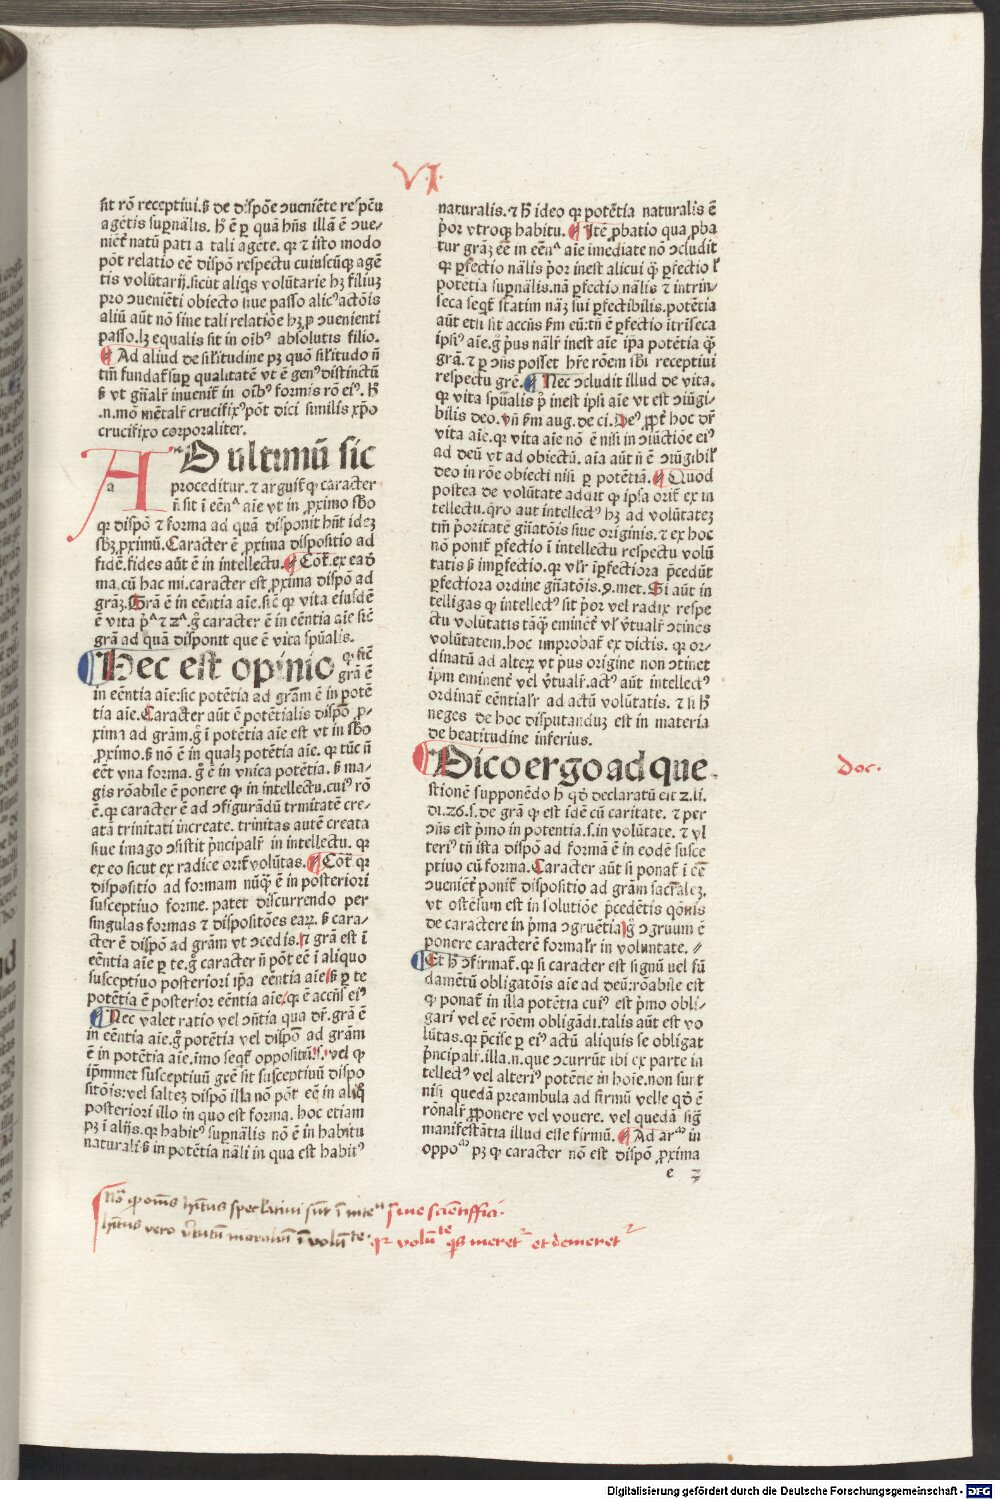 VI.
sit rō receptiui. ß de dispōe ɔueniēte respc̄tu
agētis supn̄alis. hͦ ē ꝑ quā hn̄s illā ē ɔue-
niēt natū pati a tali agēte. qꝛ ⁊ isto modo
pōt relatio eē dispō respectu cuiuscūqꝫ agē
tis volūtarij. sicut aliqs volūtarie hꝫ filiuꝫ
pro ɔueniēti obiecto siue passo alicꝰ actōis
aliū aūt nō sine tali relatiōe hꝫ ꝓ ɔuenienti
passo. lꝫ equalis sit in oībꝰ absolutis filio.
Ad aliud de sil̄itudine pꝫ quō sil̄itudo n̄
tm̄ fundat̄ sup̄ qualitatē vt ē genꝰ distinctū
ß vt gn̄alr̄ inuenit̄ in oībꝰ formis rō eiꝰ. hͦ
.n. mō mētalr̄ crucifixꝰ pōt dici similis xp̄o
crucifixo corporaliter.
AD ultimū sic
a
proceditur. ⁊ arguit̄ ꝙ caracter
n̄ sit ī eēnᵃ aīe vt in ꝓximo sb̄o
qꝛ dispō ⁊ forma ad quā disponit hn̄t idēꝫ
sb̄ꝫ ꝓximū. Caracter ē ꝓxima dispositio ad
fidē. fides aūt ē in intellectu. Cōt̄. ex eadē
ma. cū hac mi. caracter est ꝓxima dispō ad
grāꝫ. Grā ē in eēntia aīe. sic̄ ꝙ vita eiusdē
ē vita pᵃ ⁊ 2ᵃ. gͦ caracter ē in eēntia aīe sic̄
grā ad quā disponit que ē vita spūalis.
Hec est opinio ꝙ sic̄
grā ē
in eēntia aīe: sic potētia ad grām ē in potē
tia aīe. Caracter aūt ē potētialis dispō ꝓ-
xima ad grām. gͦ ī potētia aīe est vt in sb̄o
ꝓximo. ß nō ē in qualꝫ potētia aīe. qꝛ tūc n̄
eēt vna forma. gͦ ē in vnica potētia. ß ma-
gis rōabile ē ponere ꝙ in intellectu. cuiꝰ rō
ē. qꝛ caracter ē ad ɔfigurādū trinitatē cre-
atā trinitati increate. trinitas autē creata
siue imago ɔsistit p̄ncipalr̄ in intellectu. qꝛ
ex eo sicut ex radice orit̄ volūtas. Cōt̄ qꝛ
dispositio ad formam nūqꝫ ē in posteriori
susceptiuo forme. patet discurrendo per
singulas formas ⁊ dispositōes eaꝝ. ß cara-
cter ē dispō ad grām vt ɔcedis. ⁊ grā est ī
eēntia aīe ꝑ te. gͦ caracter n̄ pōt eē ī aliquo
susceptiuo posteriori ip̄a eēntia aīe. ß ꝑ te
potētia ē posterior eēntia aīe. ꝙ ē accn̄s eiꝰ
Nec valet ratio vel ɔn̄tia qua dr̄. grā ē
in eēntia aīe. gͦ potētia vel dispō ad grām
ē in potētia aīe. īmo seqt̄ oppositū. s. vel ꝙ
īp̄mmet susceptiuū grē sit susceptiuū dispo
sitōis: vel saltez dispō illa nō pōt eē in aliqͦ
posteriori illo in quo est forma. hoc etiam
pꝫ ī alijs. qꝛ habitꝰ supn̄alis nō ē in habitu
naturali ß in potētia nāli in qua est habitꝰ
naturalis. ⁊ hͦ ideo qꝛ potētia naturalis ē
p̄or vtroqꝫ habitu. Itē ꝓbatio qua ꝓba
tur grāꝫ eē in eēnᵃ aīe īmediate nō ɔcludit
ꝙ ꝑfectio nālis p̄or inest alicui ꝙ̄ ꝑfectio ł
potētia supn̄alis. nā ꝑfectio nālis ⁊ intrin-
seca seqt̄ statim nāꝫ sui ꝑfectibilis. potētia
aūt etsi sit accn̄s ẜm eū: tn̄ ē ꝑfectio ītriseca
ipsiꝰ aīe. gͦ p̄us nālr̄ inest aīe ip̄a potētia ꝙ̄
grā. ⁊ ꝑ ɔn̄s posset hr̄e rōem sb̄i receptiui
respectu grē. Nec ɔcludit illud de vita.
ꝙ vita spūalis p̄ inest ipsi aīe vt est ɔiūgi-
bilis deo. vn̄ ẜm aug. de ci. Deꝰ ꝓpt̄ hoc dr̄
vita aīe. qꝛ vita aīe nō ē nisi in ɔiūctiōe eiꝰ
ad deū vt ad obiectū. aīa aūt n̄ ē ɔiūgibil̄
deo in rōe obiecti nisi ꝑ potētiā. Quod
postea de volūtate addit ꝙ ipsa orit̄ ex in
tellectu. qͦro aut intellectꝰ hꝫ ad volūtateꝫ
tm̄ p̄oritatē gn̄atōis siue originis. ⁊ ex hoc
nō ponit̄ ꝑfectio ī intellectu respectu volū
tatis ß imꝑfectio. qꝛ vl̄r īꝑfectiora p̄cedūt
ꝑfectiora ordine gn̄atōis. 9. met. Si aūt in
telligas ꝙ intellectꝰ sit p̄or vel radix respe
ctu volūtatis tāꝙ̄ eminēt̄ vł v̄tualr̄ ɔtinēs
volūtatem. hoc improbat̄ ex dictis. qꝛ or-
dinatū ad alteꝝ vt p̄us origine non ɔtinet
ip̄m eminent̄ vel v̄tualr̄. actꝰ aūt intellectꝰ
ordinat̄ eēntialr̄ ad actū volūtatis. ⁊ si hͦ
neges de hoc disputanduꝫ est in materia
de beatitudine inferius.
Dico ergo ad que
stionē supponēdo hͦ qd̄ declaratū est 2. li.
di. 26. s. de grā ꝙ est idē cū caritate. ⁊ per
ɔn̄s est p̄mo in potentia. s. in volūtate. ⁊ vl
teriꝰ tn̄ ista dispō ad formā ē in eodē susce
ptiuo cū forma. Caracter aūt si ponat̄ ī eē
ɔueniēt̄ ponit̄ dispositio ad grām sacr̄aleꝫ.
vt ostēsum est in solutiōe p̄cedētis qōnis
de caractere in p̄ma ɔgruētia. gͦ ɔgruum ē
ponere caracterē formalr̄ in voluntate. //
Et hͦ ɔfirmat̄. qꝛ si caracter est signū vel fū
damētū obligatōis aīe ad deū: rōabile est
ꝙ ponat̄ in illa potētia cuiꝰ est p̄mo obli-
gari vel eē rōem obligādi. talis aūt est vo
lūtas. qꝛ p̄cise ꝑ eiꝰ actū aliquis se obligat
p̄ncipalr̄. illa. n. que ɔcurrūt ibi ex parte in
tellectꝰ vel alteriꝰ potētie in hoīe. non sunt
nisi quedā preambula ad firmū velle qd̄ ē
rōnalr̄ ꝓponere vel vouere. vel quedā siḡ
manifestātia illud esse firmū. Ad arᵐ in
oppoᵐ pꝫ ꝙ caracter nō est dispō ꝓxima
e 2
Doc.
Noᵃ ꝙ om̄s hītus specl̄atiui sūt ī inteᵘ siue scientiffici.
hītus vero v̄tutū moraliū ī volūte. qꝛ volūte qͥs meret̄ et demeret̄